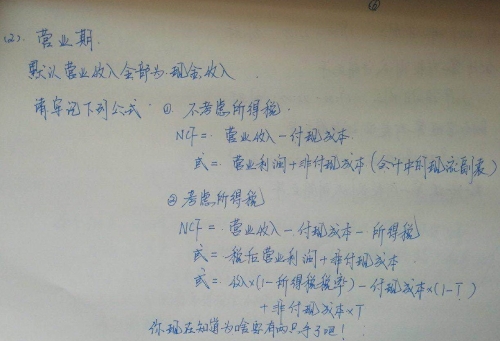 ⑥
(2). 营业期.
默认营业收入全部为现金收入.
请牢记下列公式 ① 不考虑所得税.
NCF = 营业收入 - 付现成本.
或 = 营业利润 + 非付现成本 (会计中的现流副表)
② 考虑所得税
NCF = 营业收入 - 付现成本 - 所得税
或 = 税后营业利润 + 非付现成本.
或 = 收入×(1-所得税税率) - 付现成本×(1-T)
+ 非付现成本×T
你现在知道为啥要有两只手了吧!